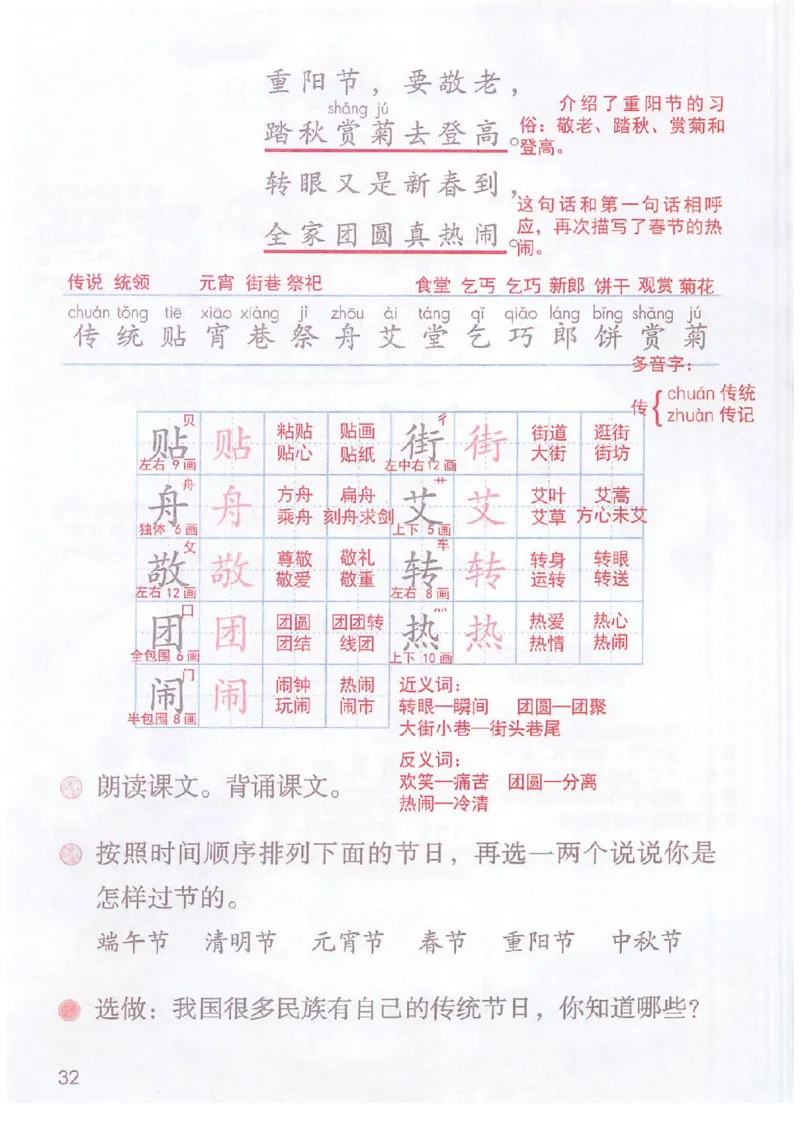 重阳节，要敬老，
shǎng jú
踏秋赏菊去登高。
介绍了重阳节的习
俗：敬老、踏秋、赏菊和
登高。
转眼又是新春到，
全家团圆真热闹。
这句话和第一句话相呼
应，再次描写了春节的热
闹。
传说 统领 元宵 街巷 祭祀 食堂 乞丐 乞巧 新郎 饼干 观赏 菊花
chuán tǒng tiē xiāo xiàng jì zhōu ài táng qǐ qiǎo láng bǐng shǎng jú
传 统 贴 宵 巷 祭 舟 艾 堂 乞 巧 郎 饼 赏 菊
多音字：
传 { chuán 传统
zhuàn 传记
贴 贝 左右 9画 贴 粘贴 贴画
贴心 贴纸
街 彳 左中右12画 街 街道 逛街
大街 街坊
舟 舟 独体 6画 舟 方舟 扁舟
乘舟 刻舟求剑
艾 艹 上下 5画 艾 艾叶 艾蒿
艾草 方兴未艾
敬 攵 左右 12画 敬 尊敬 敬礼
敬爱 敬重
转 车 左右 8画 转 转身 转眼
运转 转送
团 囗 全包围 6画 团 团圆 团团转
团结 线团
热 灬 上下 10画 热 热爱 热心
热情 热闹
闹 门 半包围 8画 闹 闹钟 热闹
玩闹 闹市
近义词：
转眼—瞬间 团圆—团聚
大街小巷—街头巷尾
反义词：
欢笑—痛苦 团圆—分离
热闹—冷清
朗读课文。背诵课文。
按照时间顺序排列下面的节日，再选一两个说说你是
怎样过节的。
端午节 清明节 元宵节 春节 重阳节 中秋节
选做：我国很多民族有自己的传统节日，你知道哪些？
32